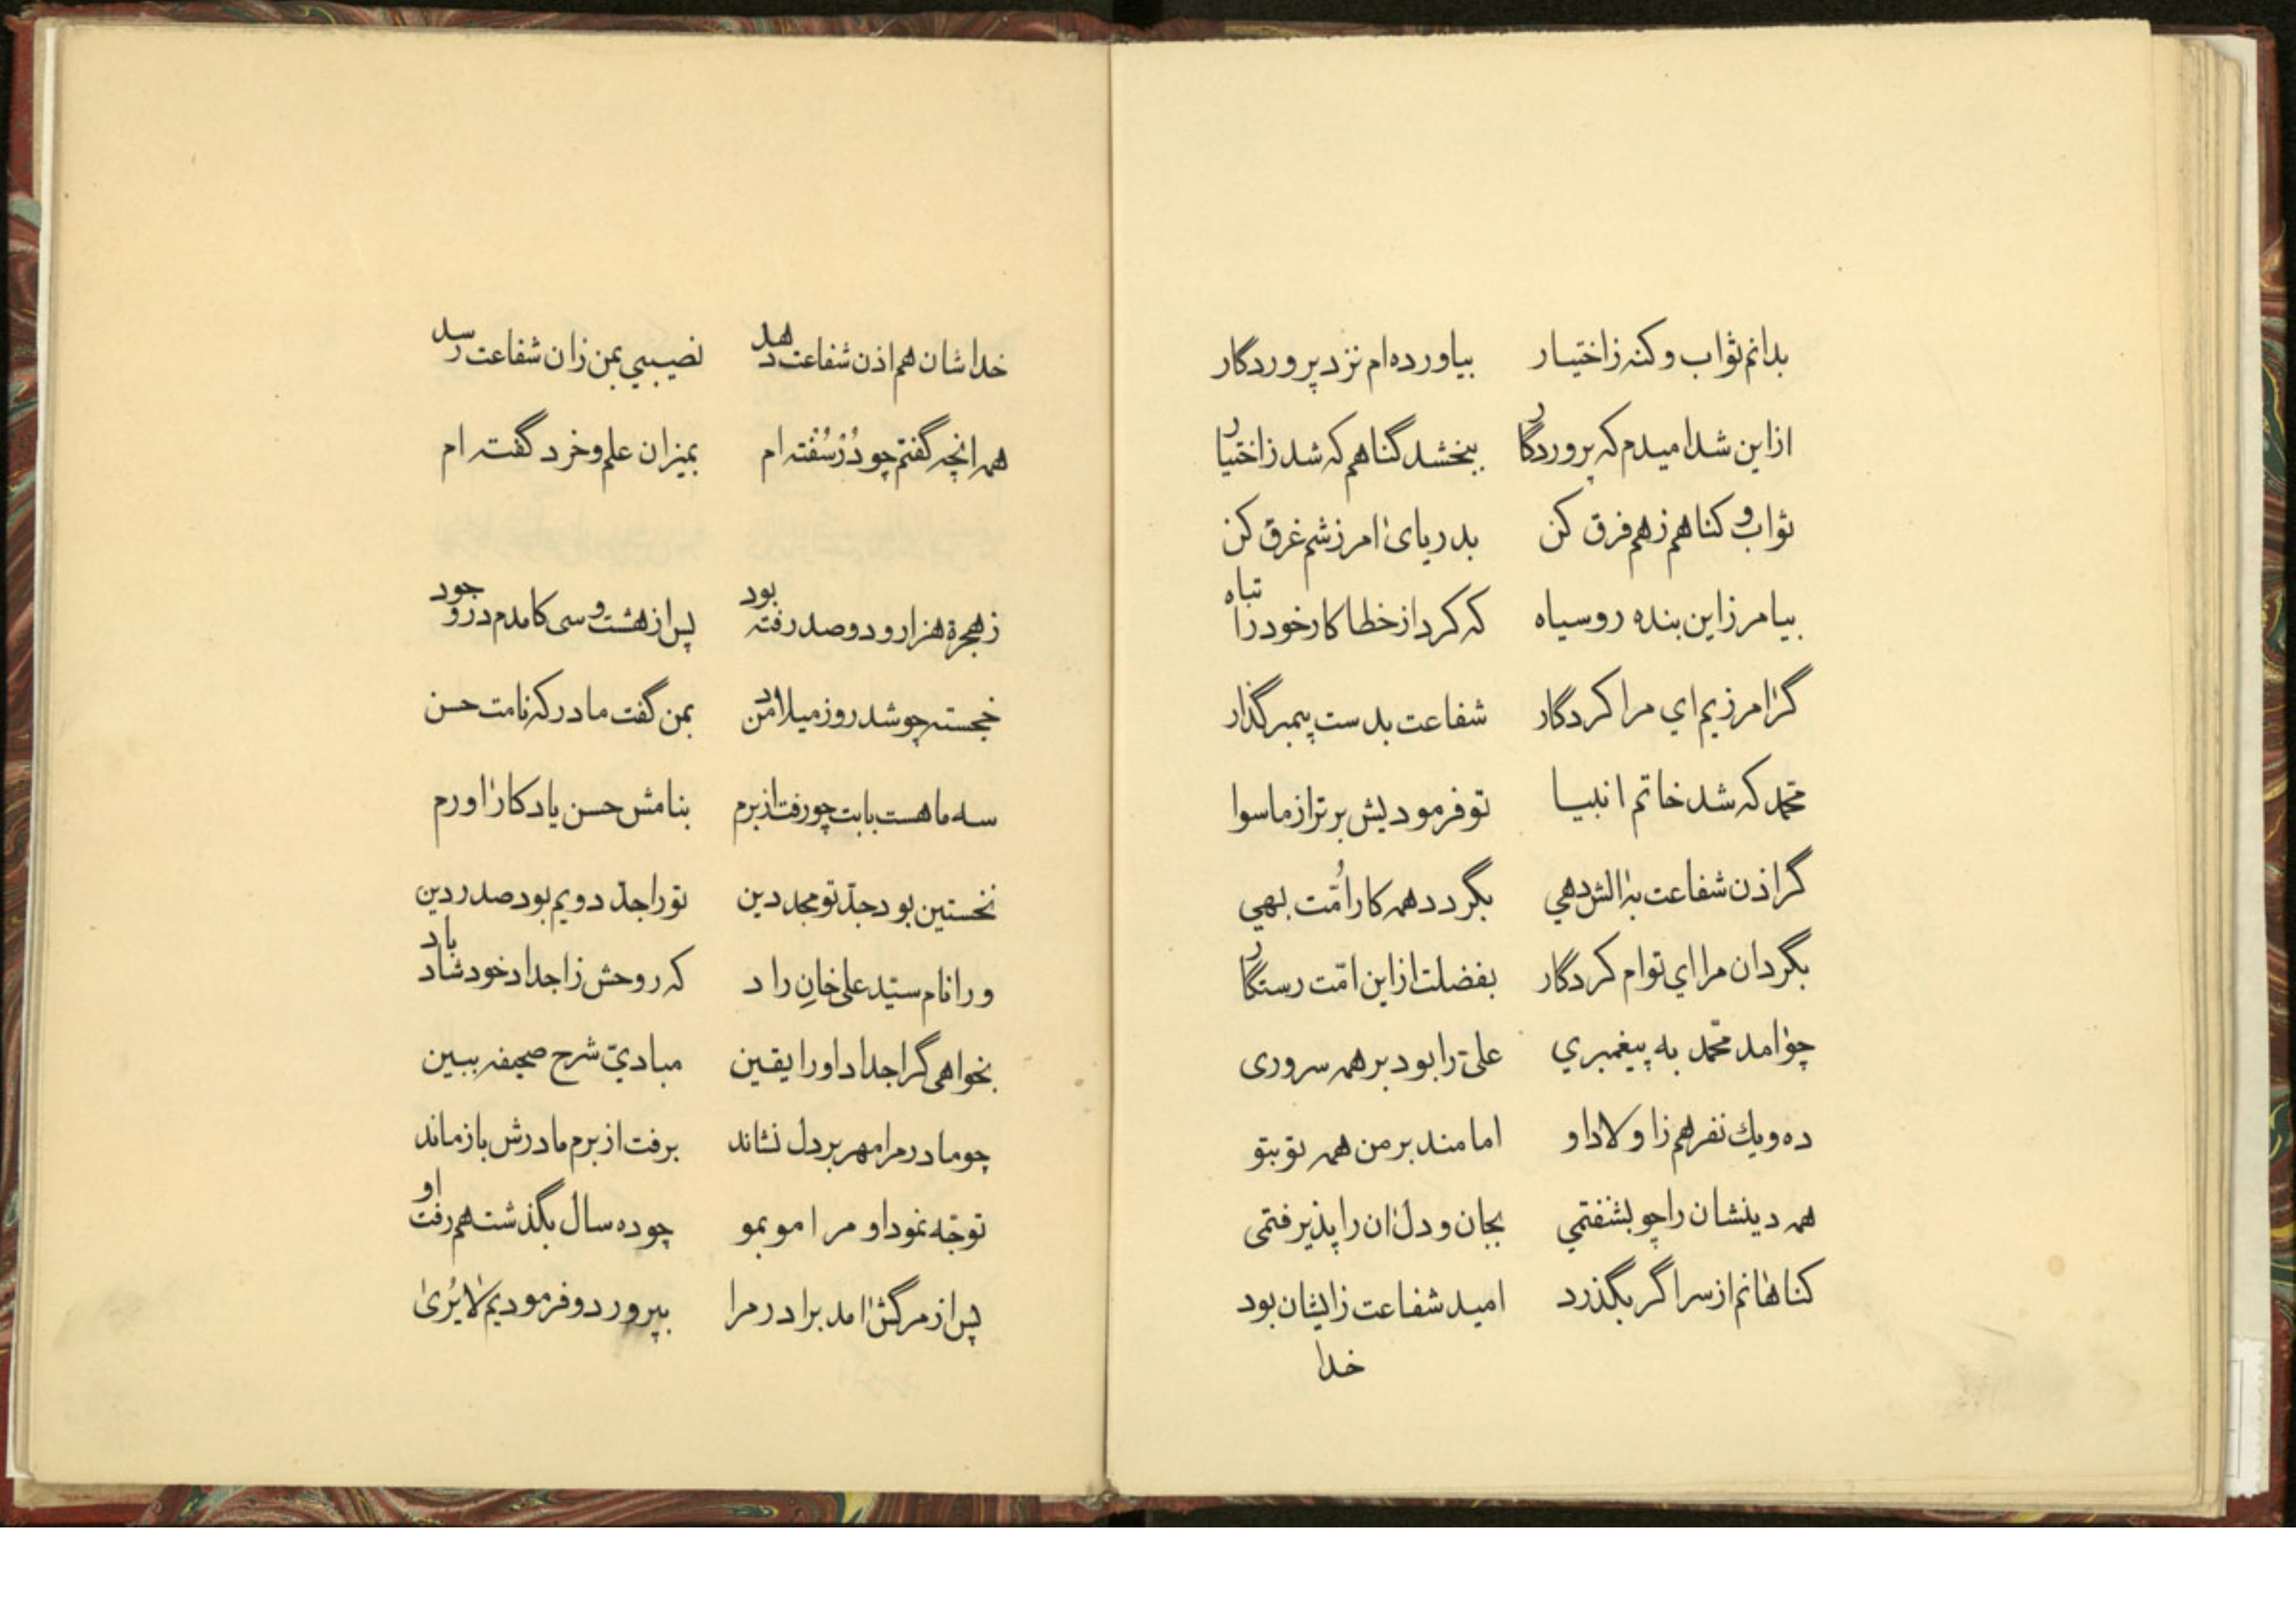 بدانم ثواب و کنه ز اختیار بیاورده‌ام نزد پروردگار
از این شد امیدم که پروردگار ببخشد گناهم که شد ز اختیار
ثواب و کناهم ز هم فرق کن بدریای امرزشم غرق کن
بیامرز این بنده روسیاه که کرد از خطا کار خود را تباه
گر امرزیم اي مرا کردگار شفاعت بدست پیمبر گذار
محمد که شد خاتم انبیا تو فرمودیش برتر از ماسوا
گر اذن شفاعت بر الش دهي بگردد همه کار اُمّت بهي
بگردان مرا اي توام کردگار بفضلت از این امّت رستگار
چو امد محمّد به پیغمبري علیّ را بود بر همه سروری
ده و یك نفر هم ز اولاد او امامند بر من همه تو بتو
همه دینشان را چو بشنفتمي بجان و دل ان را پذیرفتمی
کناهانم از سر اگر بگذرد امید شفاعت ز ایشان بود
خدا
خداشان هم اذن شفاعت دهد نصیبي بمن زان شفاعت رسد
همه انچه گفتم چو دُرّ سُفته‌ام بمیزان علم و خرد گفته‌ام
ز هجرة هزار و دو صد رفته بود پس از هشت و سی کامدم در وجود
خجسته چو شد روز میلاد من بمن گفت مادر که نامت حسن
سه ماهست بابت چو رفت از برم بنامش حسن یادکار اورم
نخستین بود جدّ تو مجد دین تو را جدّ دویم بود صدر دین
ورا نام سیّد علی خانِ راد که روحش ز اجداد خود شاد باد
بخواهی گر اجداد او را یقین مباديّ شرح صحیفه ببین
چو مادر مرا مهر بر دل نشاند برفت از برم مادرش باز ماند
توجّه نمود او مرا مو بمو چو ده سال بگذشت هم رفت او
پس از مرگش امد برادر مرا بپرورد و فرمودیم لا یُریٰ